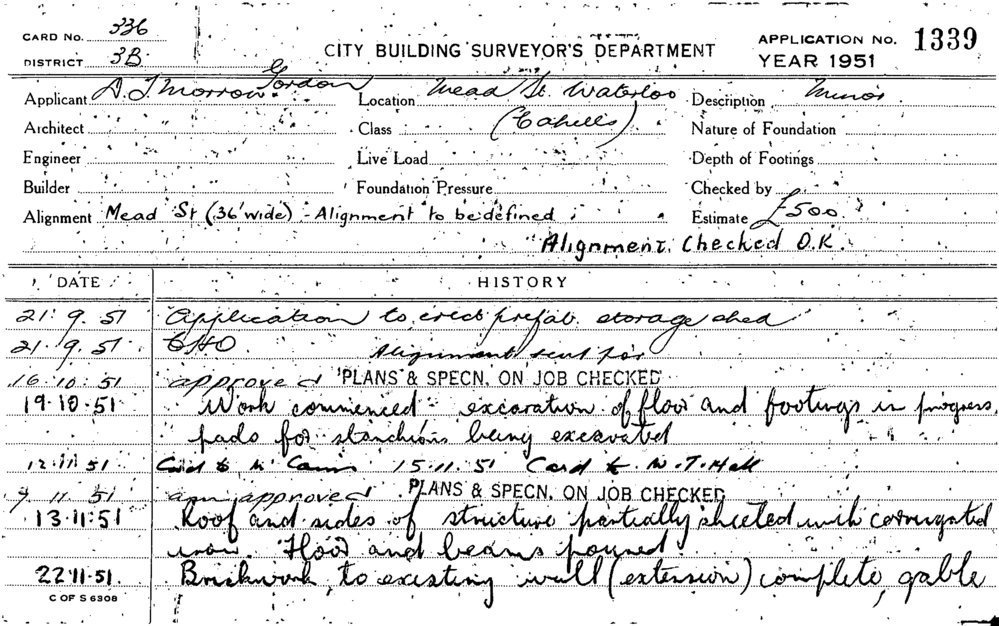 CARD No. 336
DISTRICT 3B
CITY BUILDING SURVEYOR'S DEPARTMENT
APPLICATION No. 1339
YEAR 1951
Applicant D. J Morrow Gordon
Location Mead St. Waterloo
Description Minor
Architect
Class (Cahills)
Nature of Foundation
Engineer
Live Load
Depth of Footings
Builder
Foundation Pressure
Checked by
Alignment Mead St (36' wide) - Alignment to be defined
Estimate £500
Alignment Checked O.K.
DATE HISTORY
21. 9. 51 Application to erect prefab. storage shed
21. 9. 51 CHO. Alignment sent for
16. 10. 51 approved PLANS & SPECN. ON JOB CHECKED
19.10.51 Work commenced - excavation of floor and footings in progress
pads for stanchions being excavated
12.11.51 Card to 15.11.51 Card to W. T. Hall
9. 11. 51 approved PLANS & SPECN. ON JOB CHECKED
13.11.51 Roof and sides of structure partially sheeted with corrugated
iron. Floor and beams poured
22.11.51. Brickwork to existing wall (extension) complete, gable
C OF S 6308